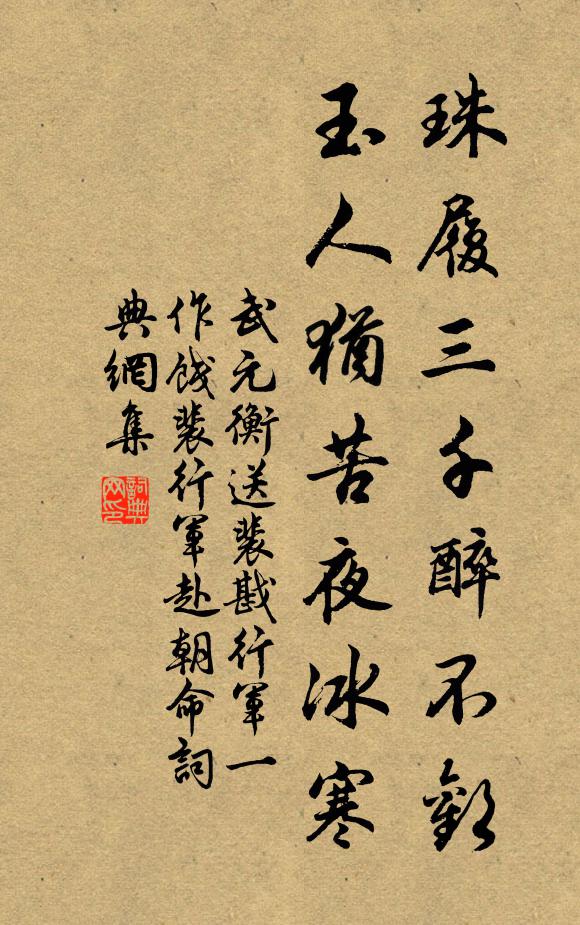 珠履三千醉不歡
玉人猶苦夜冰寒
武元衡送裴戡行軍一
作餞裴行軍赴朝命詞
典網集
詞典網印